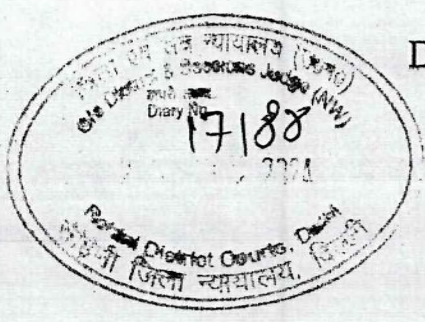 जिला एवं सत्र न्यायालय (उ०प०)
O/o District & Sessions Judge (NW)
Diary No.
17188
Rohini District Courts, Delhi
रोहिणी जिला न्यायालय, दिल्ली
D